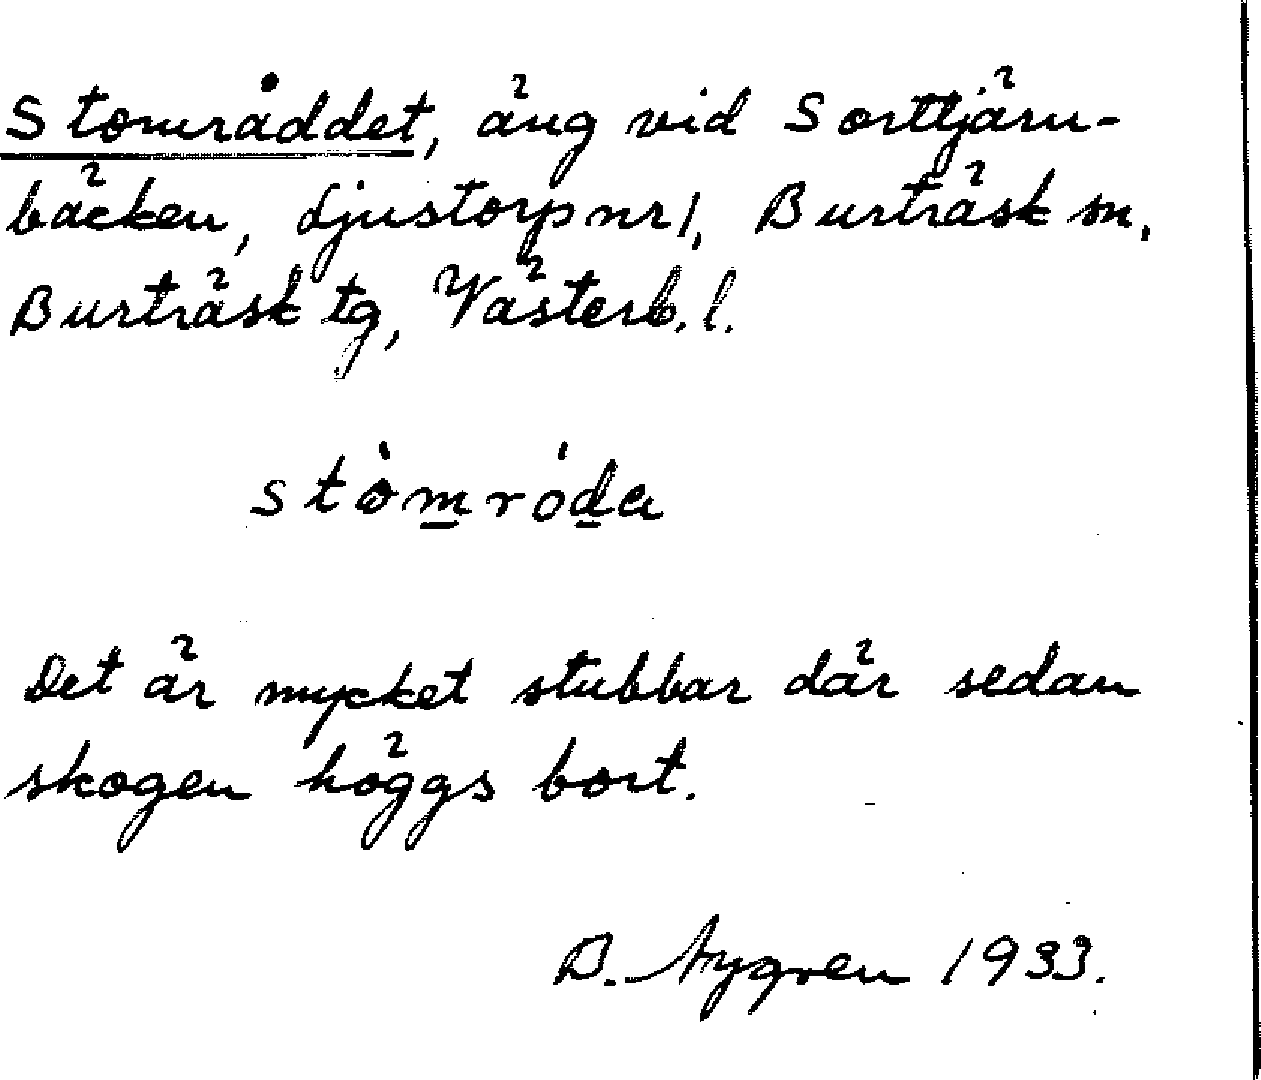 Stområddet, äng vid Sorttjärn-
bäcken, Ljustorp nr 1, Burträsk sn,
Burträsk tg, Västerb. l.
stòmróda
Det är mycket stubbar där sedan
skogen höggs bort.
B. Nygren 1933.